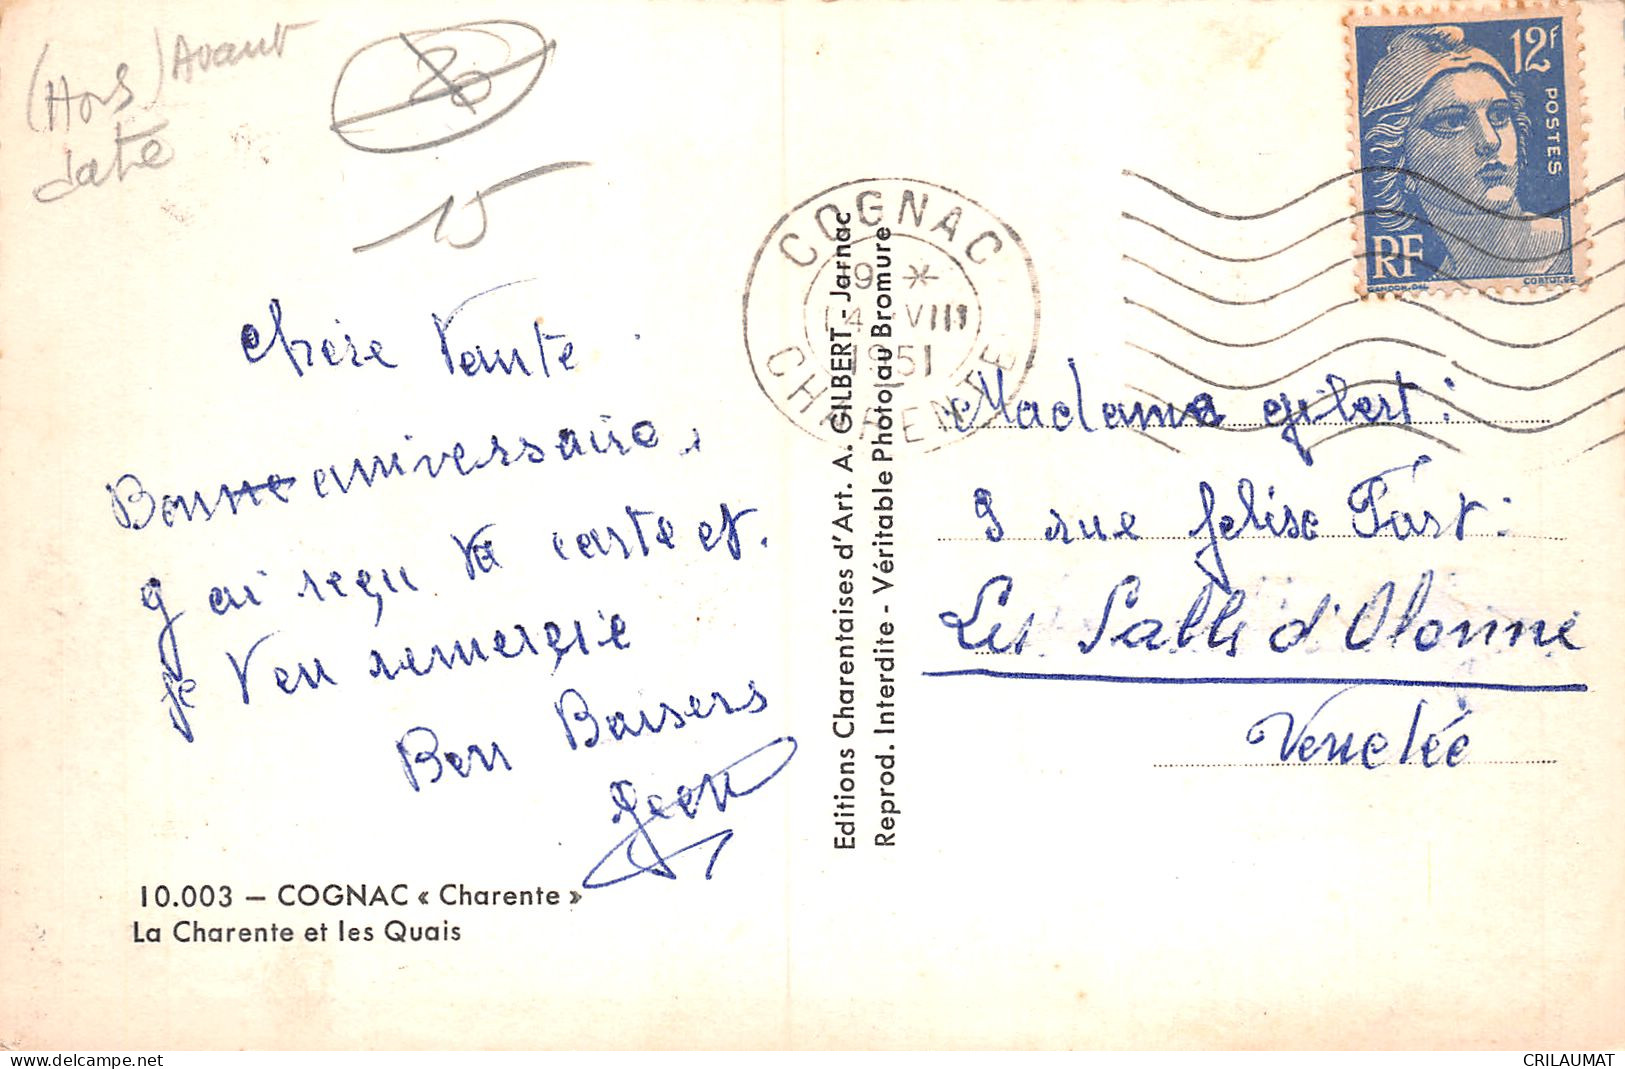 (Hors) Avant
date
20
15
chère Tante
Bonne anniversaire,
J ai reçu ta carte et.
je T'en remercie
Bon Baisers
10.003 — COGNAC « Charente »
La Charente et les Quais
Editions Charentaises d'Art. A. GILBERT - Jarnac
Reprod. Interdite - Véritable Photo au Bromure
COGNAC
9 *
14 VIII
1951
CHARENTE
12F
POSTES
RF
GANDON.DEL
CORTOT.SC
Madame gilbert:
9 rue felise Fast:
Les Salles d'Olonne
Vendée
CRILAUMAT
delcampe.net